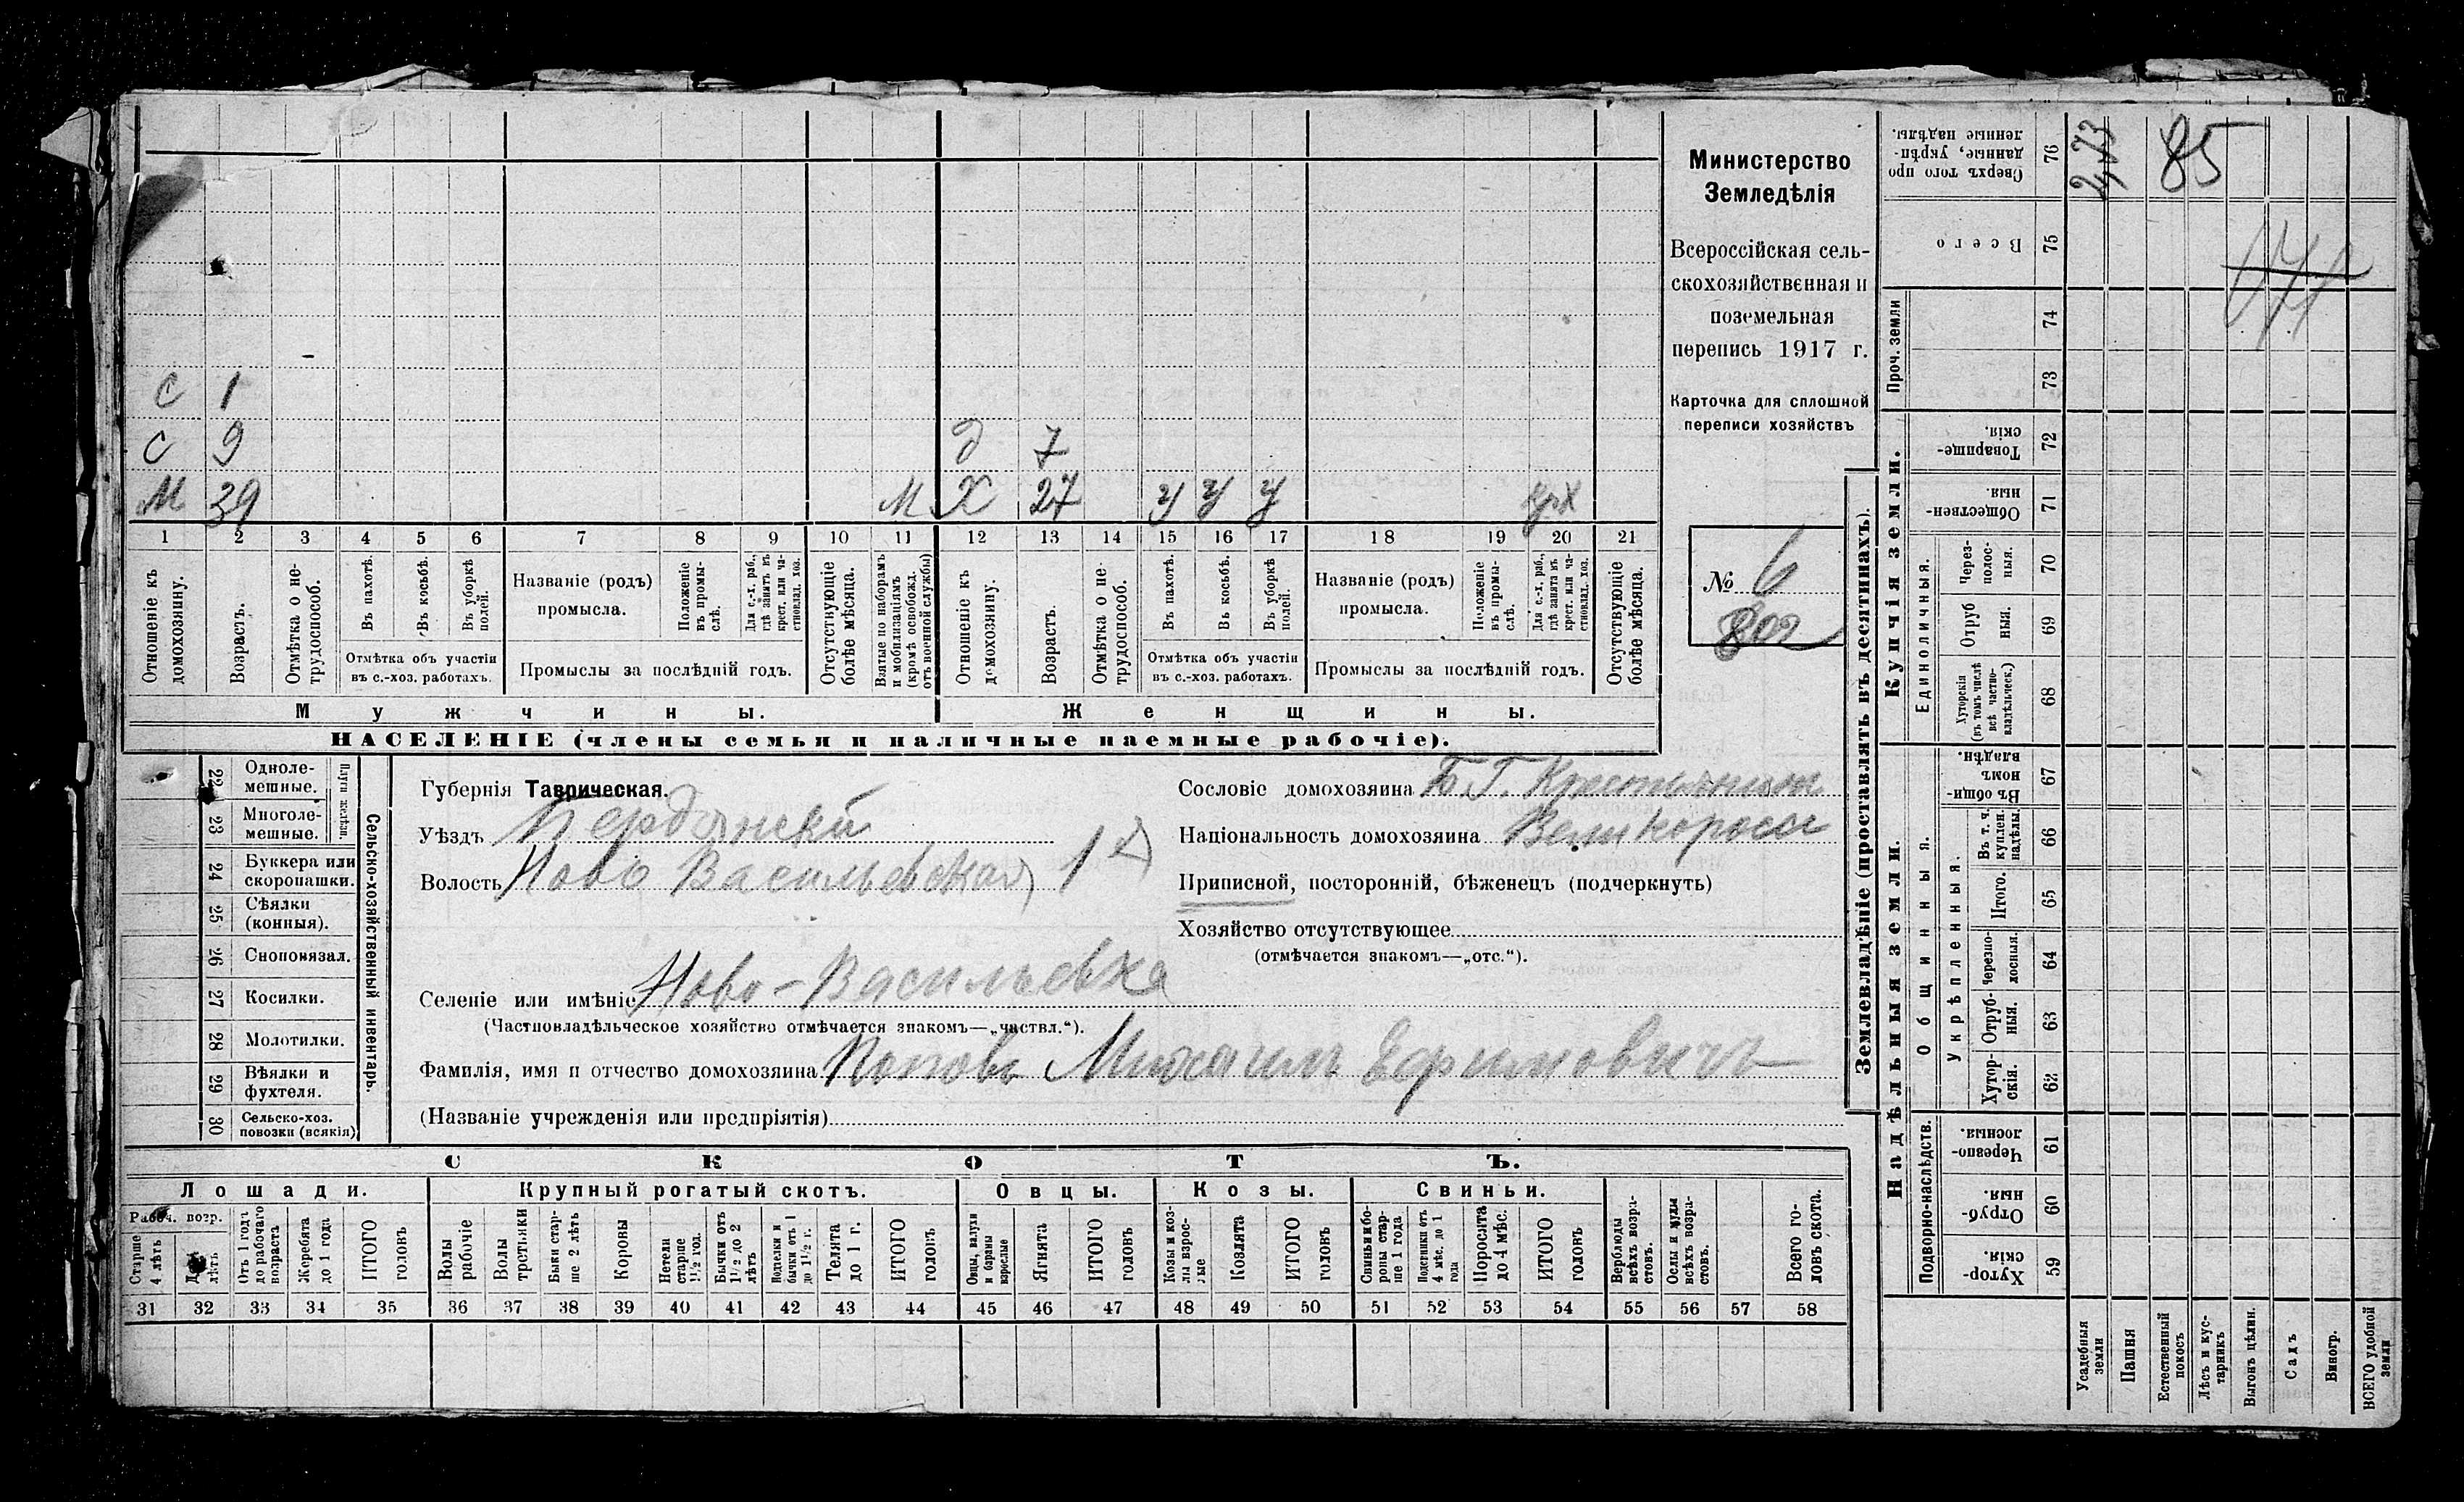 С 1
С 9 Д 7
М 39 М Х 27 У У У
1 2 3 4 5 6 7 8 9 10 11 12 13 14 15 16 17 18 19 20 21
Отношеніе къ домохозяину.
Возрастъ.
Отмѣтка о нетрудоспособ.
Въ пахотѣ.
Въ косьбѣ.
Въ уборкѣ полей.
Отмѣтка объ участіи
въ с.-хоз. работахъ.
Названіе (родъ)
промысла.
Положеніе въ промыслѣ.
Для с.-х. раб., гдѣ занятъ въ крест. или частновлад. хоз.
Промыслы за послѣдній годъ.
Отсутствующіе болѣе мѣсяца.
Взятые по наборамъ и мобилизаціямъ (кромѣ освобожд. отъ военной службы)
Отношеніе къ домохозяину.
Возрастъ.
Отмѣтка о нетрудоспособ.
Въ пахотѣ.
Въ косьбѣ.
Въ уборкѣ полей.
Отмѣтка объ участіи
въ с.-хоз. работахъ.
Названіе (родъ)
промысла.
Положеніе въ промыслѣ.
Для с.-х. раб., гдѣ занята въ крест. или частновлад. хоз.
Промыслы за послѣдній годъ.
Отсутствующіе болѣе мѣсяца.
Мужчины.
Женщины.
НАСЕЛЕНІЕ (члены семьи и наличные наемные рабочіе).
Министерство
Земледѣлія
Всероссійская сель-
скохозяйственная и
поземельная
перепись 1917 г.
Карточка для сплошной
переписи хозяйствъ
№ 6
802
Сельско-хозяйственный инвентарь.
Плуги желѣзн.
22 Одноле-
мешные.
23 Многоле-
мешные.
24 Буккера или
скоропашки.
25 Сѣялки
(конныя).
26 Сноповязал.
27 Косилки.
28 Молотилки.
29 Вѣялки и
фухтеля.
30 Сельско-хоз.
повозки (всякія)
Губернія Таврическая.
Уѣздъ Бердянскій
Волость Ново Васильевская 1
Селеніе или имѣніе Ново-Васильевка
(Частновладѣльческое хозяйство отмѣчается знакомъ—„частвл.“).
Фамилія, имя и отчество домохозяина Поповъ Михаилъ Ефимовичъ
(Названіе учрежденія или предпріятія)
Сословіе домохозяина Б. Г. Крестьянин
Національность домохозяина Великоросс
Приписной, посторонній, бѣженецъ (подчеркнуть)
Хозяйство отсутствующее
(отмѣчается знакомъ—„отс.“).
СКОТЪ.
Лошади. Крупный рогатый скотъ. Овцы. Козы. Свиньи.
Рабоч. возр.
Старше 4 лѣтъ
До 4 лѣтъ
Отъ 1 годъ до рабочаго возраста
Жеребята до 1 года
ИТОГО головъ
Волы рабочіе
Волы третьяки
Быки старше 2 лѣтъ
Коровы
Нетели старше 1½ год.
Бычки отъ 1½ до 2 лѣтъ
Подтелки и бычки отъ 1 до 1½ г.
Телята до 1 г.
ИТОГО головъ
Овцы, валухи и бараны взрослые
Ягнята
ИТОГО головъ
Козы и козлы взрослые
Козлята
ИТОГО головъ
Свиньи и боровы старше 1 года
Подсвинки отъ 4 мѣс. до 1 года
Поросята до 4 мѣс.
ИТОГО головъ
Верблюды всѣхъ возрастовъ.
Ослы и мулы всѣхъ возрастовъ.
Всего головъ скота.
31 32 33 34 35 36 37 38 39 40 41 42 43 44 45 46 47 48 49 50 51 52 53 54 55 56 57 58
Землевладѣніе (проставлять въ десятинахъ).
Купчія земли.
Надѣльныя земли.
76 Сверхъ того проданные, укрѣпленные надѣлы.
2,73
85
75 Всего
Проч. земли
74
73
72 Товарищескія.
71 Общественныя.
Единоличныя.
70 Черезполосныя.
69 Отрубныя.
68 Хуторскія (въ томъ числѣ всѣ частновладѣльческ.)
Общинныя.
67 Въ общинномъ владѣн.
Укрѣпленныя.
66 Въ т. ч. куплен. надѣлы.
65 Итого.
64 Черезполосныя.
63 Отрубныя.
62 Хуторскія.
Подворно-наслѣдств.
61 Черезполосныя.
60 Отрубныя.
59 Хуторскія.
Усадебныя земли
Пашня
Естественный покосъ
Лѣсъ и кустарникъ
Выгонъ цѣлин.
Садъ
Виногр.
ВСЕГО удобной земли